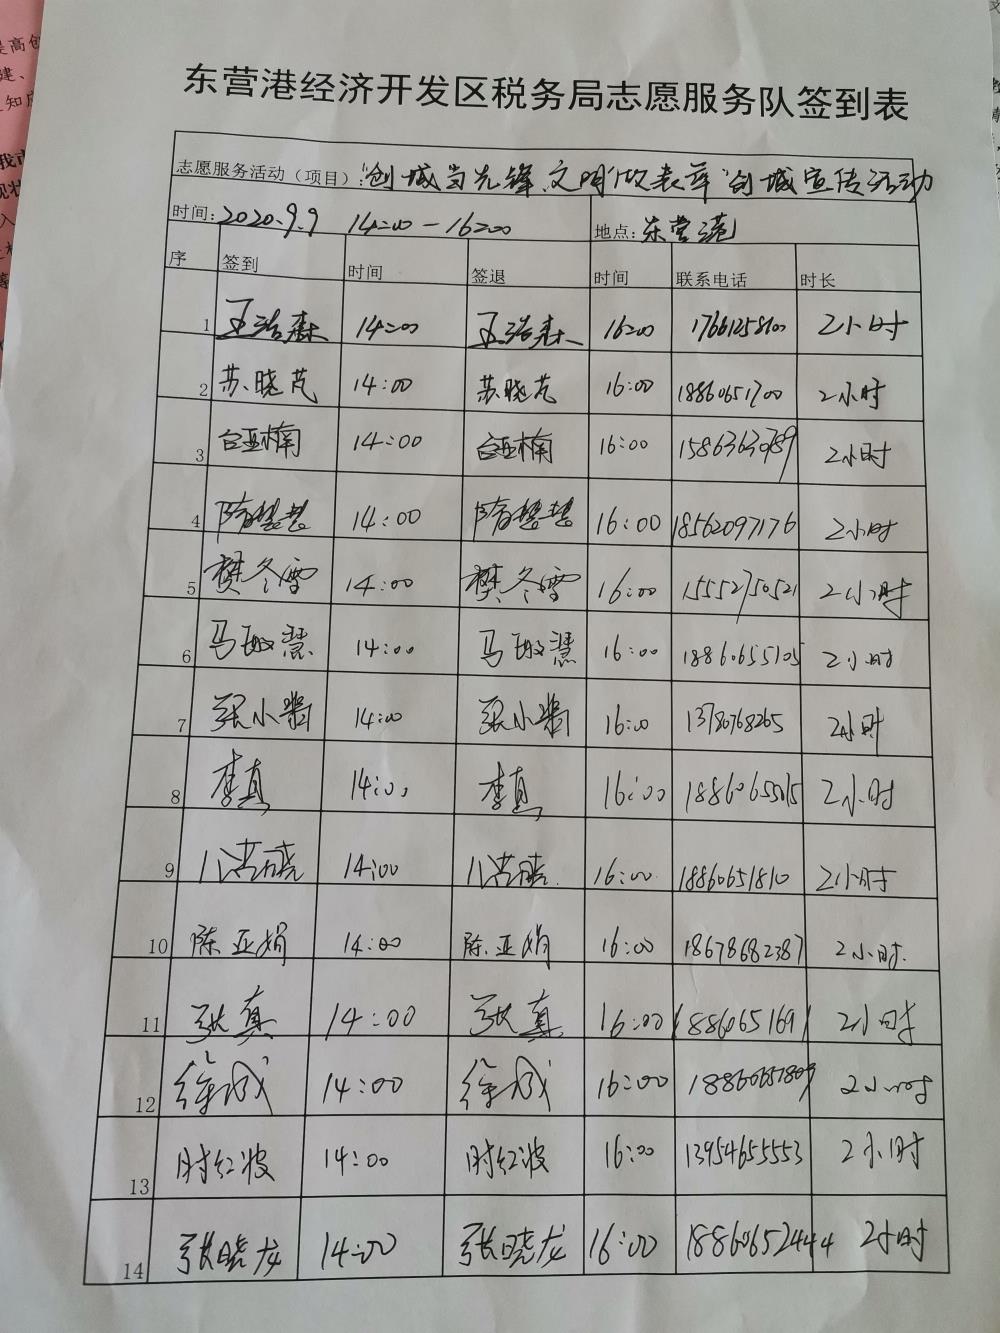 东营港经济开发区税务局志愿服务队签到表
志愿服务活动（项目）："创城当先锋、文明做表率"创城宣传活动
时间：2020.9.9 14:00-16:00 地点：东营港
序 签到 时间 签退 时间 联系电话 时长
1 王浩森 14:00 王浩森 16:00 17661258100 2小时
2 苏晓芃 14:00 苏晓芃 16:00 18860651700 2小时
3 台亚楠 14:00 台亚楠 16:00 15863630789 2小时
4 隋慧慧 14:00 隋慧慧 16:00 18562097176 2小时
5 樊冬雪 14:00 樊冬雪 16:00 15552750521 2小时
6 马敏慧 14:00 马敏慧 16:00 18860655105 2小时
7 张小 14:00 张小 16:00 13780768265 2小时
8 李真 14:00 李真 16:00 18860655015 2小时
9 14:00 16:00 18860651810 2小时
10 陈亚娟 14:00 陈亚娟 16:00 18678682387 2小时
11 张真 14:00 张真 16:00 18860651691 2小时
12 徐成 14:00 徐成 16:00 18860651809 2小时
13 时红波 14:00 时红波 16:00 13954655553 2小时
14 张晓龙 14:00 张晓龙 16:00 18860652444 2小时